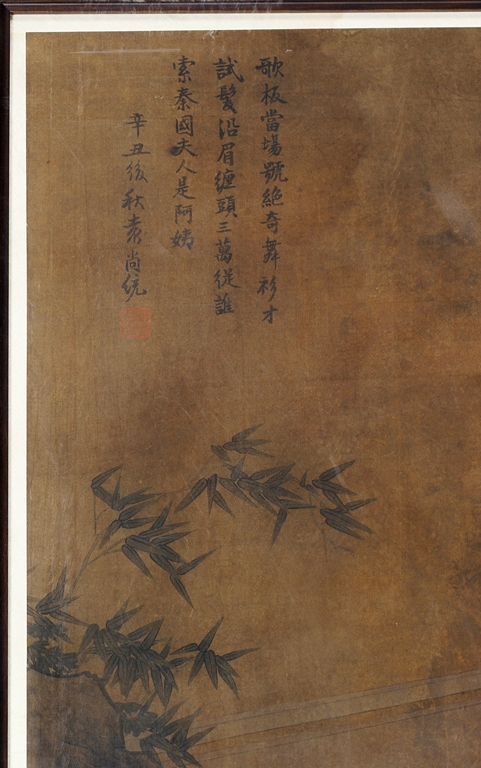 歌板當場號絶奇舞衫才
試髮沿眉纏頭三萬従誰
索秦國夫人是阿姨
辛丑後秋袁尚统